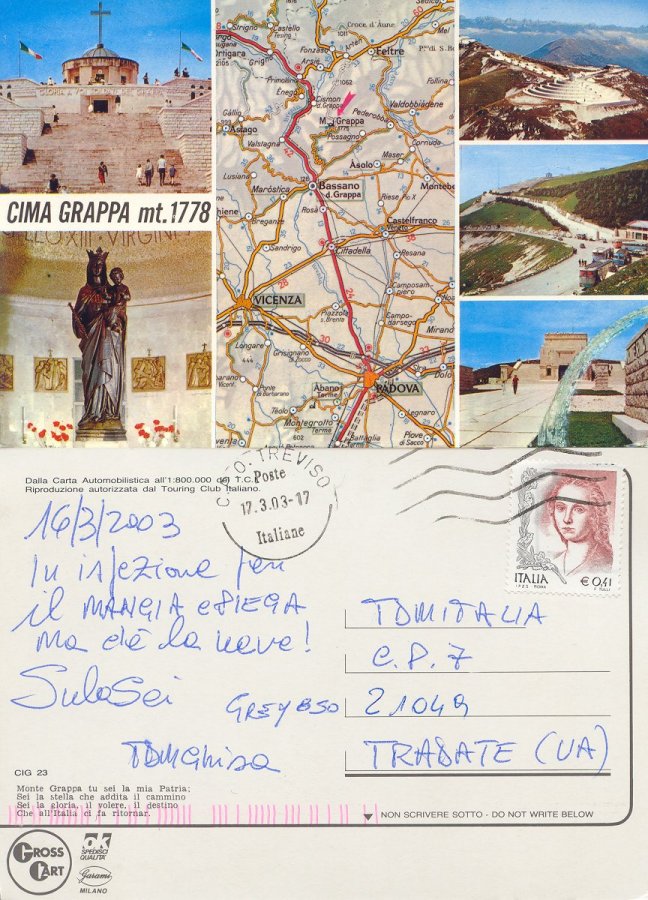 CIMA GRAPPA mt.1778
Feltre
Croce d'Aune
Fonzaso
Arsie
Primolano
Enego
Cismon
d. Grappa
M. Grappa
1775
Valdobbiadene
Pederobba
Possagno
Cornuda
Asiago
Valstagna
Gállio
Lusiana
Maser
Asolo
Maróstica
Bassano
d. Grappa
Breganze
Rosà
Castelfranco
Sandrigo
Cittadella
Resana
Camposam-
piero
VICENZA
Piazzola
s. Brenta
Campo-
darsego
Mirano
Longare
Grisignano
di Zocco
PADOVA
Ábano
Terme
Teolo
Montegrotto
Terme
Legnaro
Piove
di Sacco
Battaglia
Dalla Carta Automobilistica all'1:800.000 del T.C.I.
Riproduzione autorizzata dal Touring Club Italiano.
C.P.O. TREVISO
Poste
17.3.03-17
Italiane
ITALIA
€ 0,41
I.P.Z.S. ROMA
F. TULLI
16/3/2003
In ispezione per
il MANGIA e PIEGA
ma c'è la neve!
SuloSei
GREYBSO
TDMahisa
TDMITALIA
C.P. 7
21049
TRADATE (VA)
CIG 23
Monte Grappa tu sei la mia Patria;
Sei la stella che addita il cammino
Sei la gloria, il volere, il destino
Che all'Italia ci fa ritornar.
NON SCRIVERE SOTTO - DO NOT WRITE BELOW
GROSS
CART
OK
SPEDISCI
QUALITA'
Garami
MILANO